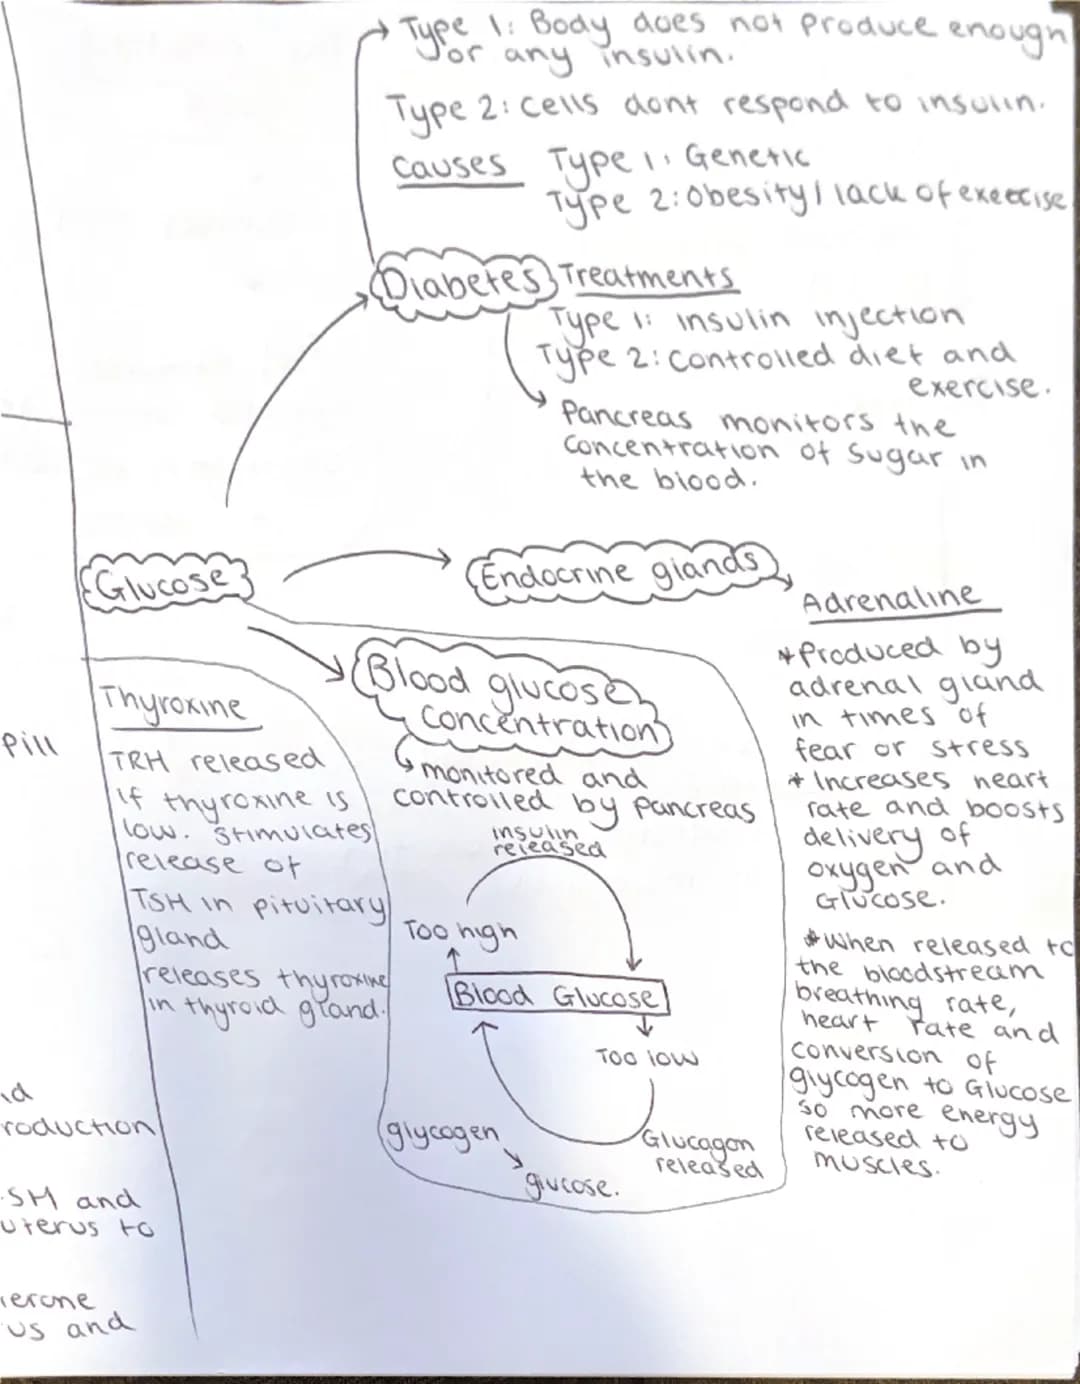 Type 1: Body does not produce enough
or any insulin.
Type 2: cells dont respond to insulin.
causes Type 1: Genetic
Type 2: Obesity / lack of exercise
Diabetes
Treatments
Type 1: insulin injection
Type 2: controlled diet and
exercise.
Pancreas monitors the
concentration of sugar in
the blood.
Glucose
Endocrine glands
Adrenaline
*Produced by
adrenal gland
in times of
fear or stress
* Increases heart
rate and boosts
delivery of
oxygen and
Glucose.
*when released to
the bloodstream
breathing rate,
heart rate and
conversion of
glycogen to Glucose
so more energy
released to
muscles.
Blood glucose
concentration
monitored and
controlled by pancreas
insulin
released
Too high
Blood Glucose
Too low
Glucagon
released
glycogen
glucose.
Thyroxine
TRH released
if thyroxine is
low. stimulates
release of
TSH in pituitary
gland
releases thyroxine
in thyroid gland.
Pill
roduction
SH and
uterus to
us and